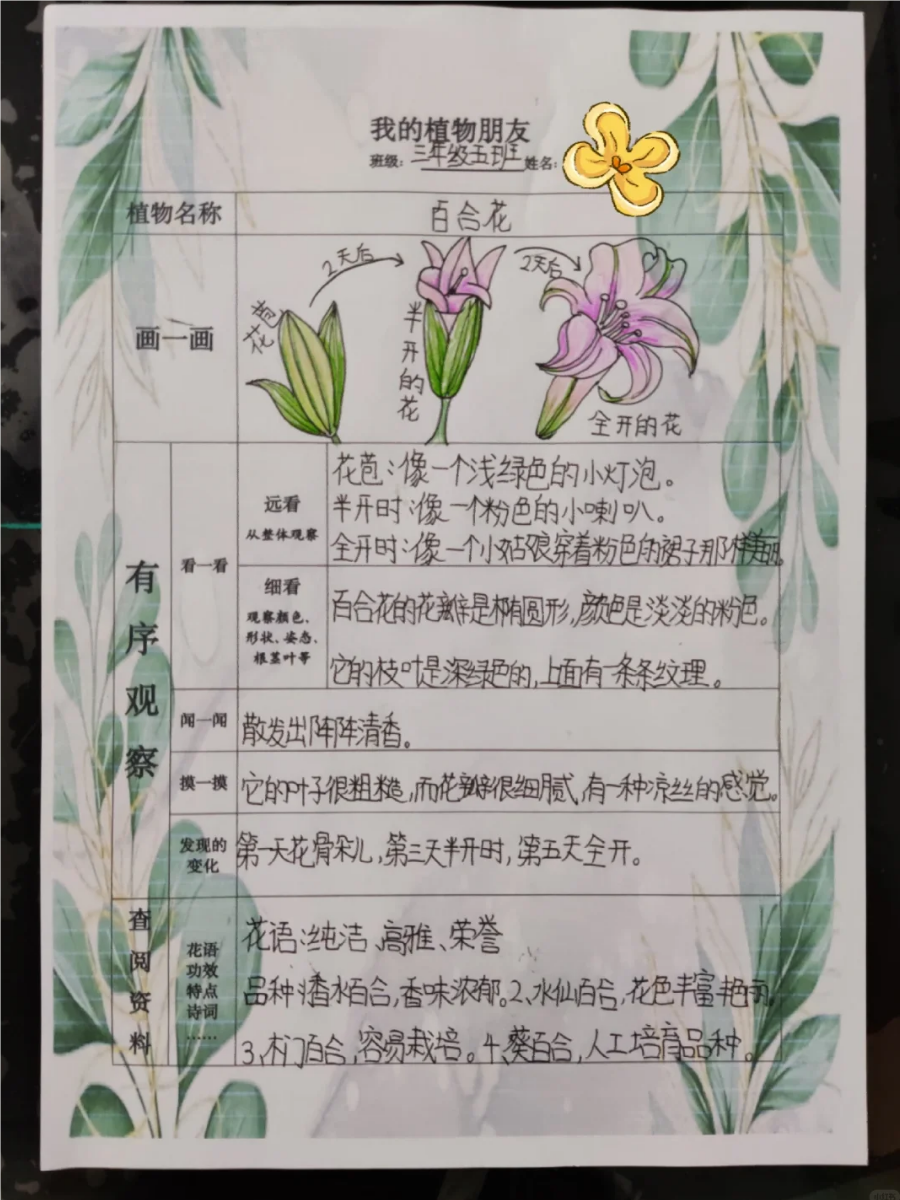 我的植物朋友
班级：三年级五班 姓名：
植物名称
百合花
画一画
花苞
2天后
半开的花
2天后
全开的花
有序观察
看一看
远看
从整体观察
花苞：像一个浅绿色的小灯泡。
半开时：像一个粉色的小喇叭。
全开时：像一个小姑娘穿着粉色的裙子那样美丽。
细看
观察颜色、
形状、姿态、
根茎叶等
百合花的花瓣是椭圆形，颜色是淡淡的粉色。
它的枝叶是深绿色的，上面有一条条纹理。
闻一闻
散发出阵阵清香。
摸一摸
它的叶子很粗糙，而花瓣很细腻，有一种凉丝丝的感觉。
发现的
变化
第一天花骨朵儿，第三天半开时，第五天全开。
查阅资料
花语
功效
特点
诗词
……
花语：纯洁、高雅、荣誉
品种：香水百合，香味浓郁。2、水仙百合，花色丰富艳丽。
3、木门百合，容易栽培。4、葵百合，人工培育品种。